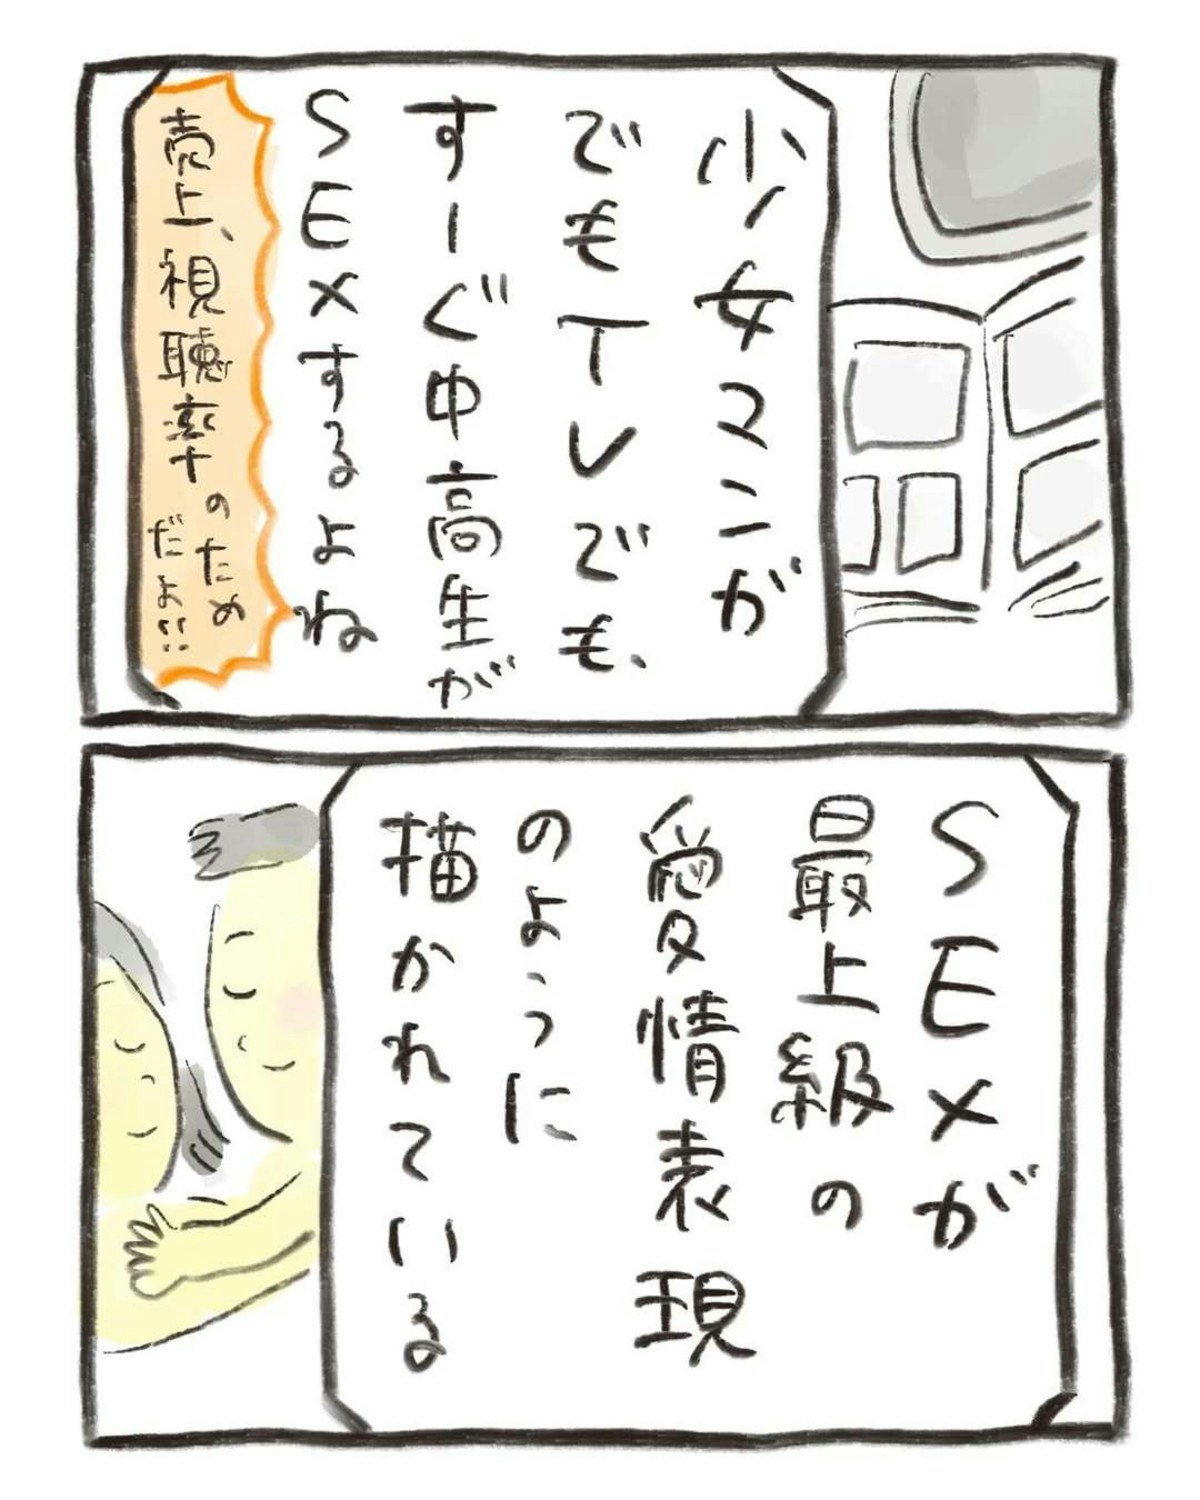 少女マンガ
でもTVでも、
すーぐ中高生が
SEXするよね
売上、視聴率のため
だよ!!
SEXが
最上級の
愛情表現
のように
描かれている